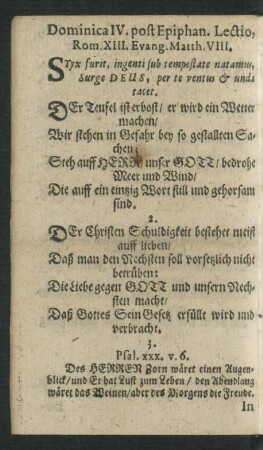 Dominica IV. post Epiphan. Lectio,
Rom. XIII. Evang. Matth. VIII.
STyx furit, ingenti sub tempestate natamus,
Surge DEUS, per te ventus & unda
tacet.
DEr Teufel ist erbost/ er wird ein Wetter
machen/
Wir stehen in Gefahr bey so gestallten Sa-
chen:
Steh auff HERR unser GOTT/ bedrohe
Meer und Wind/
Die auff ein eintzig Wort still und gehorsam
sind.
2.
DEr Christen Schuldigkeit bestehet meist
auff lieben/
Daß man den Nechsten soll vorsetzlich nicht
betrüben:
Die Liebe gegen GOTT und unsern Nech-
sten macht/
Daß Gottes Sein Gesetz erfüllt wird und
verbracht.
3.
Psal. xxx. v. 6.
Des HERREN Zorn wäret einen Augen-
blick/ und Er hat Lust zum Leben/ den Abendlang
wäret das Weinen/ aber des Morgens die Freude.
In